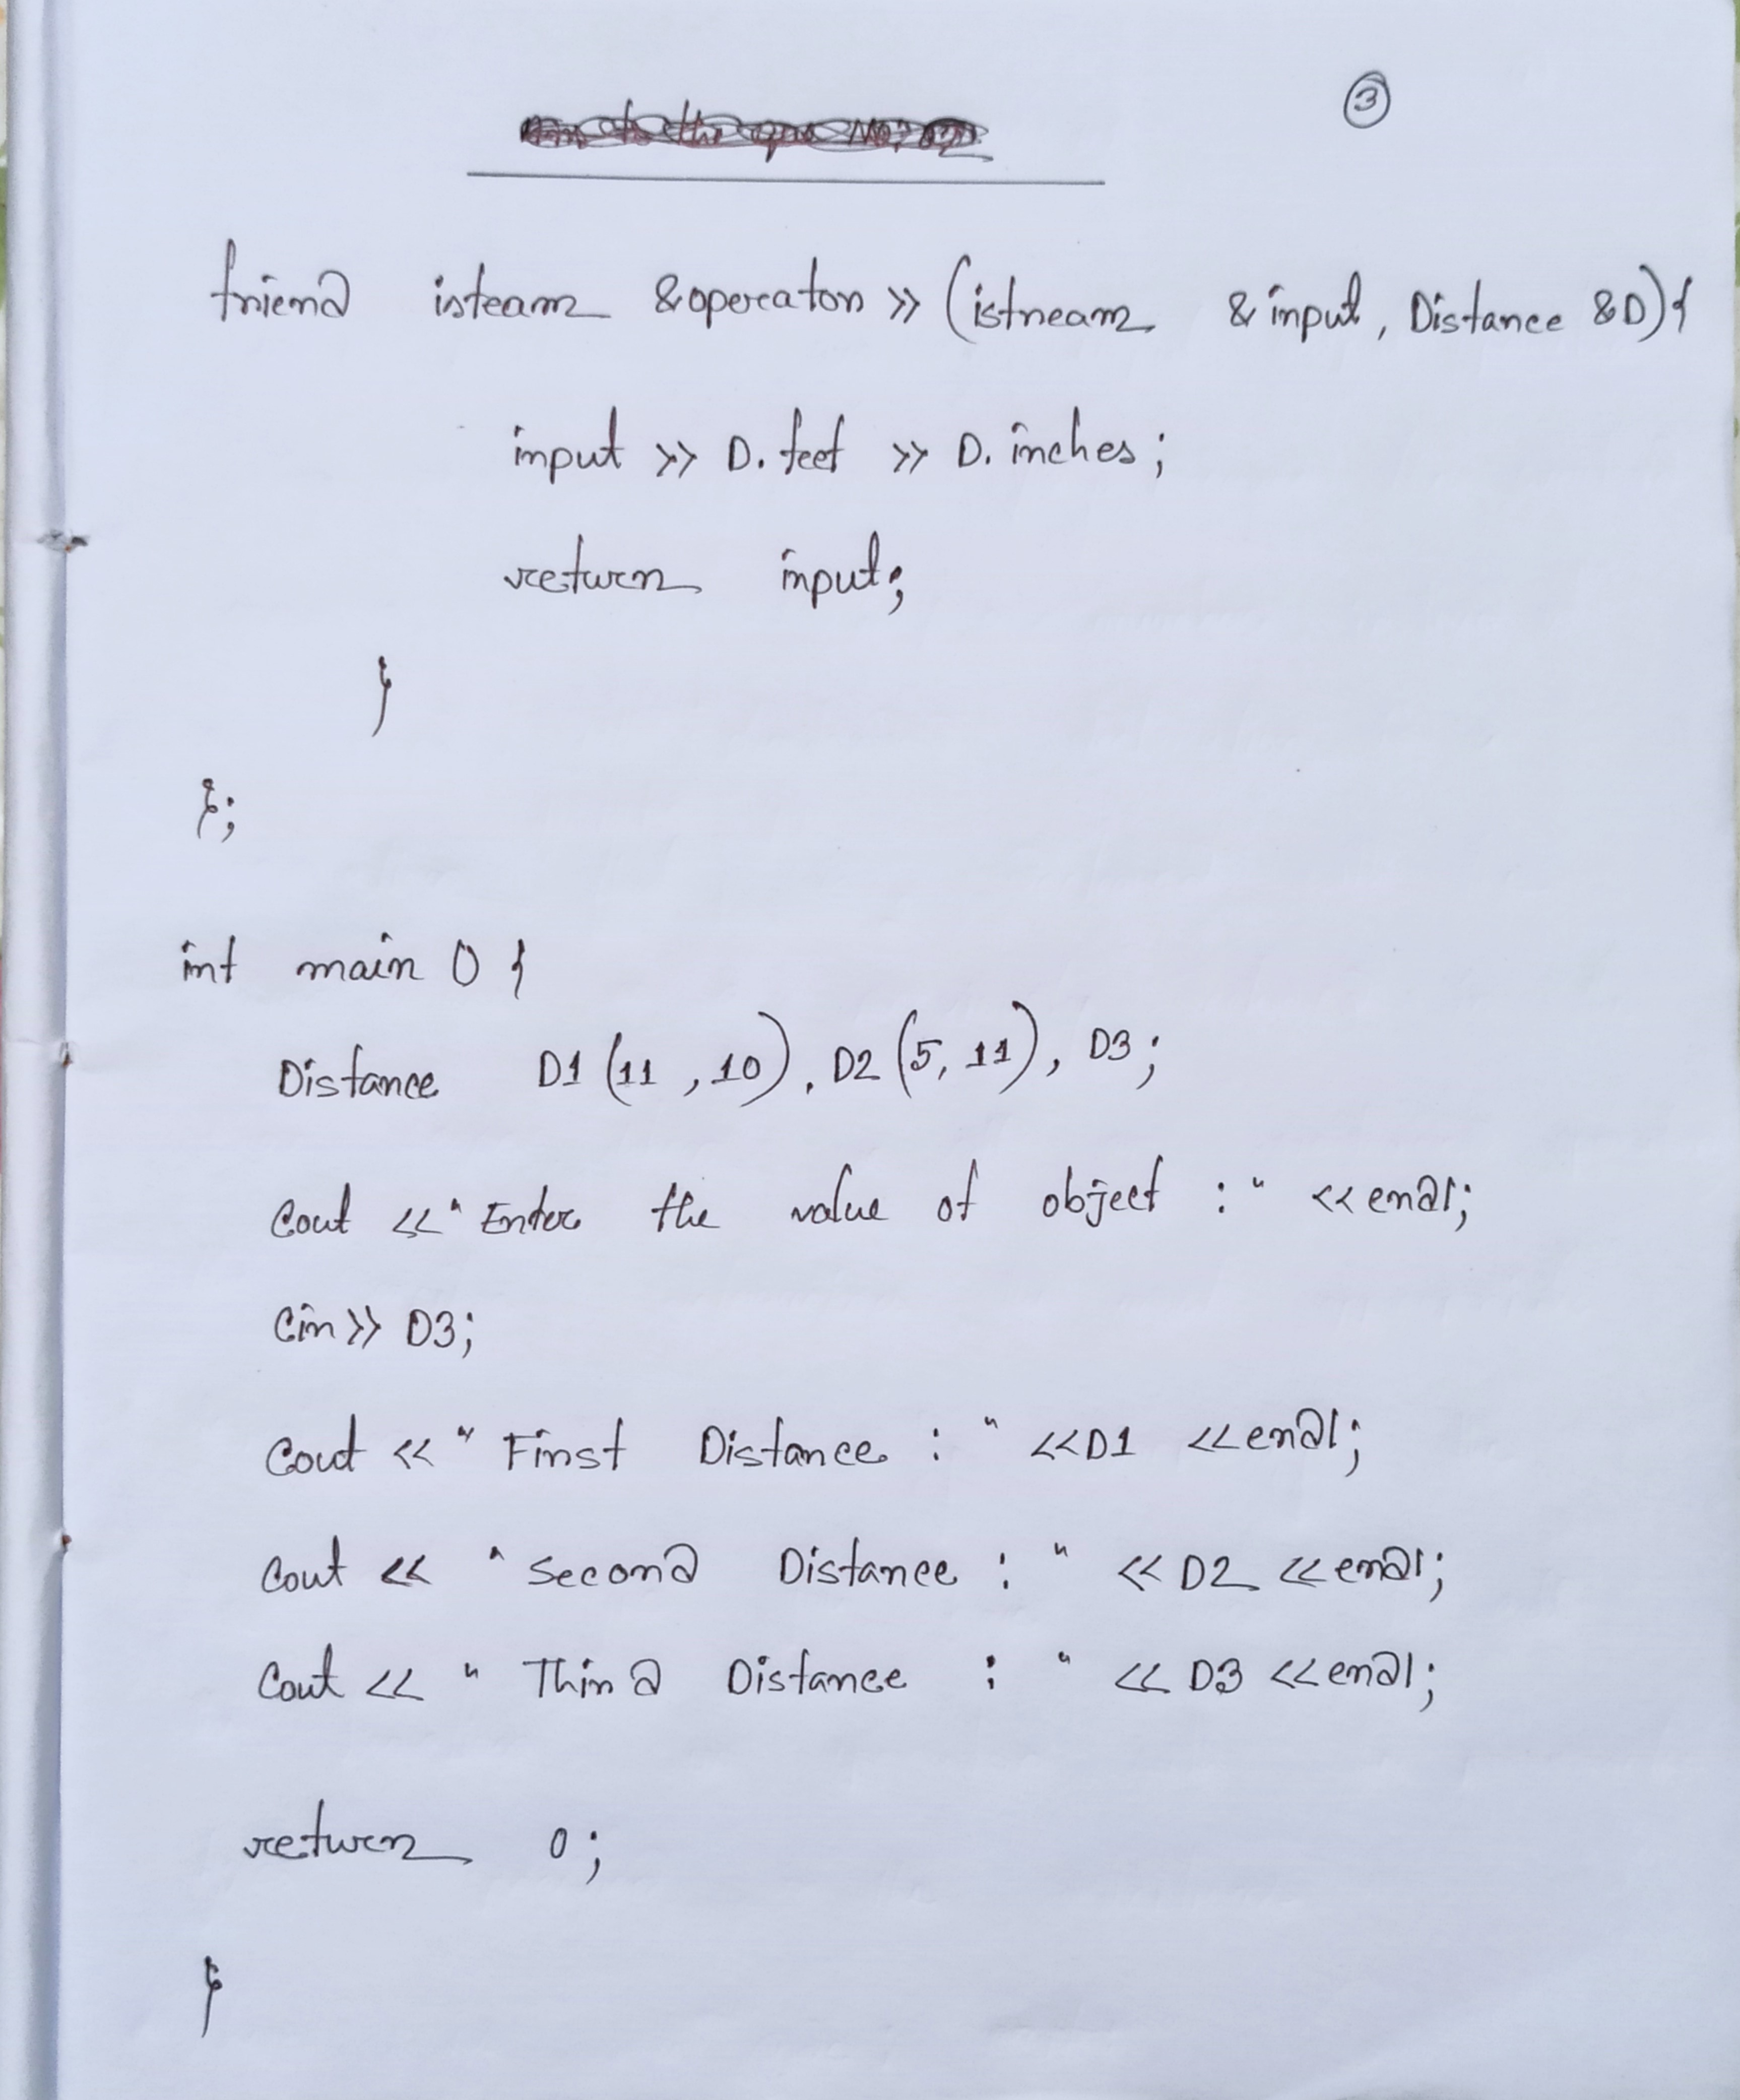 3
friend isteam &operator >> (istream & input, Distance &D){
input >> D. feet >> D. inches;
return input;
}
};
int main () {
Distance D1 (11 , 10), D2 (5, 11), D3;
Cout << "Enter the value of object : " << endl;
Cin >> D3;
Cout << " First Distance : " << D1 << endl;
Cout << " Second Distance : " << D2 << endl;
Cout << " Third Distance : " << D3 << endl;
return 0;
}